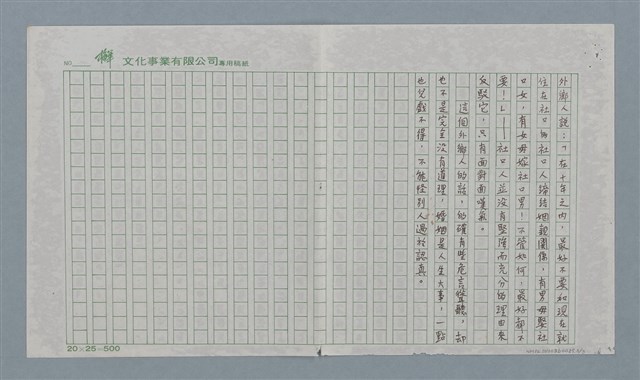 NO.
文化事業有限公司專用稿紙
外鄉人說：「在十年之內，最好不要和現在就
住在社口的社口人締結姻親關係，有男毋娶社
口女，有女毋嫁社口男！不管如何，最好都不
要！」——社口人並沒有堅強而充分的理由來
反駁它，只有面對面嘆氣。
這個外鄉人的話，的確有點危言聳聽，却
也不是完全沒有道理，婚姻是人生大事，一點
也兒戲不得，不能怪別人過於認真。
20×25=500